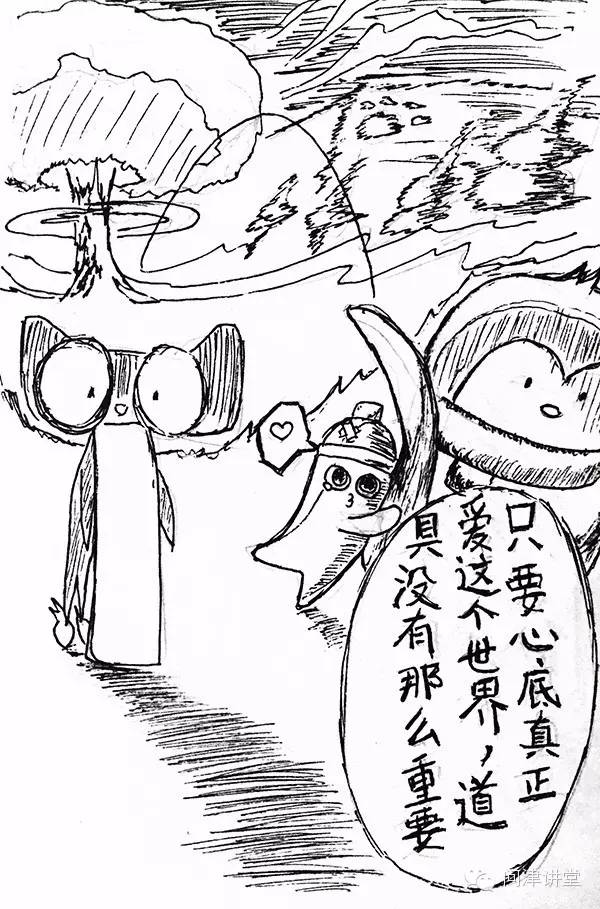 只要心底真正
爱这个世界，道
具没有那么重要
问津讲堂